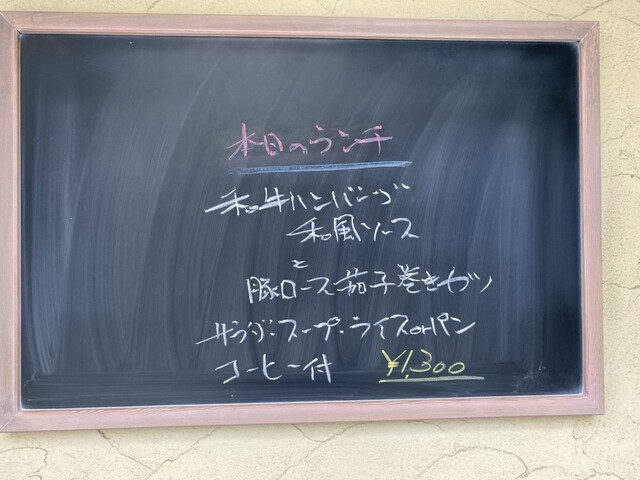 本日のランチ
和牛ハンバーグ
和風ソース
と
豚ロース茄子巻きカツ
サラダ・スープ・ライスorパン
コーヒー付 ¥1,300